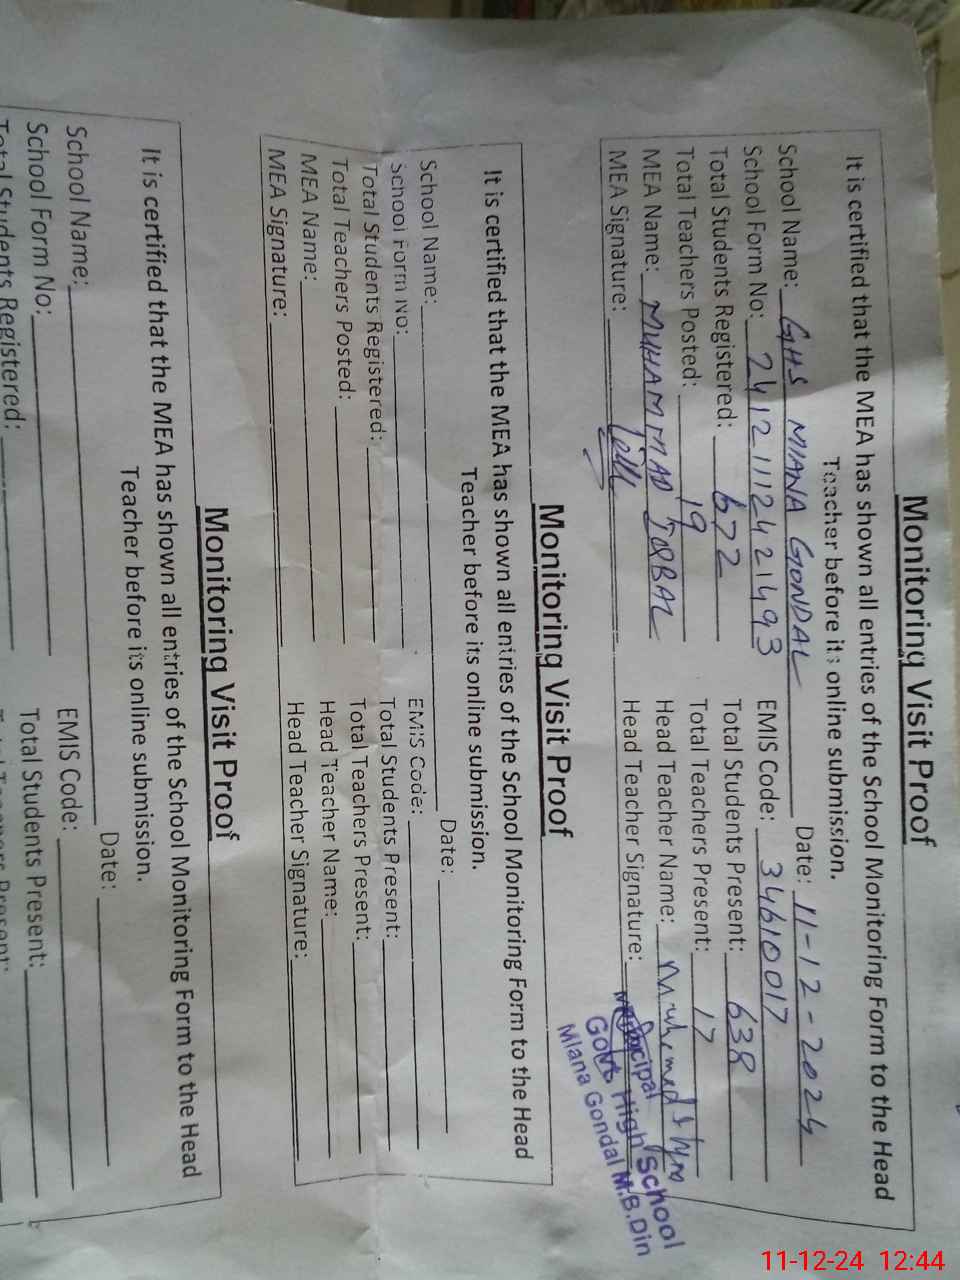 Monitoring Visit Proof
It is certified that the MEA has shown all entries of the School Monitoring Form to the Head
Teacher before its online submission.
School Name: GHS MIANA GONDAL Date: 11-12-2024
School Form No: 24121112421493 EMIS Code: 34610017
Total Students Registered: 672 Total Students Present: 638
Total Teachers Posted: 19 Total Teachers Present: 17
MEA Name: MUHAMMAD IQBAL Head Teacher Name: Muhammad
MEA Signature: Head Teacher Signature:
Principal
Govt. High School
Miana Gondal M.B.Din
Monitoring Visit Proof
It is certified that the MEA has shown all entries of the School Monitoring Form to the Head
Teacher before its online submission.
School Name: Date:
School Form No: EMIS Code:
Total Students Registered: Total Students Present:
Total Teachers Posted: Total Teachers Present:
MEA Name: Head Teacher Name:
MEA Signature: Head Teacher Signature:
Monitoring Visit Proof
It is certified that the MEA has shown all entries of the School Monitoring Form to the Head
Teacher before its online submission.
School Name: Date:
School Form No: EMIS Code:
Total Students Registered: Total Students Present:
11-12-24 12:44